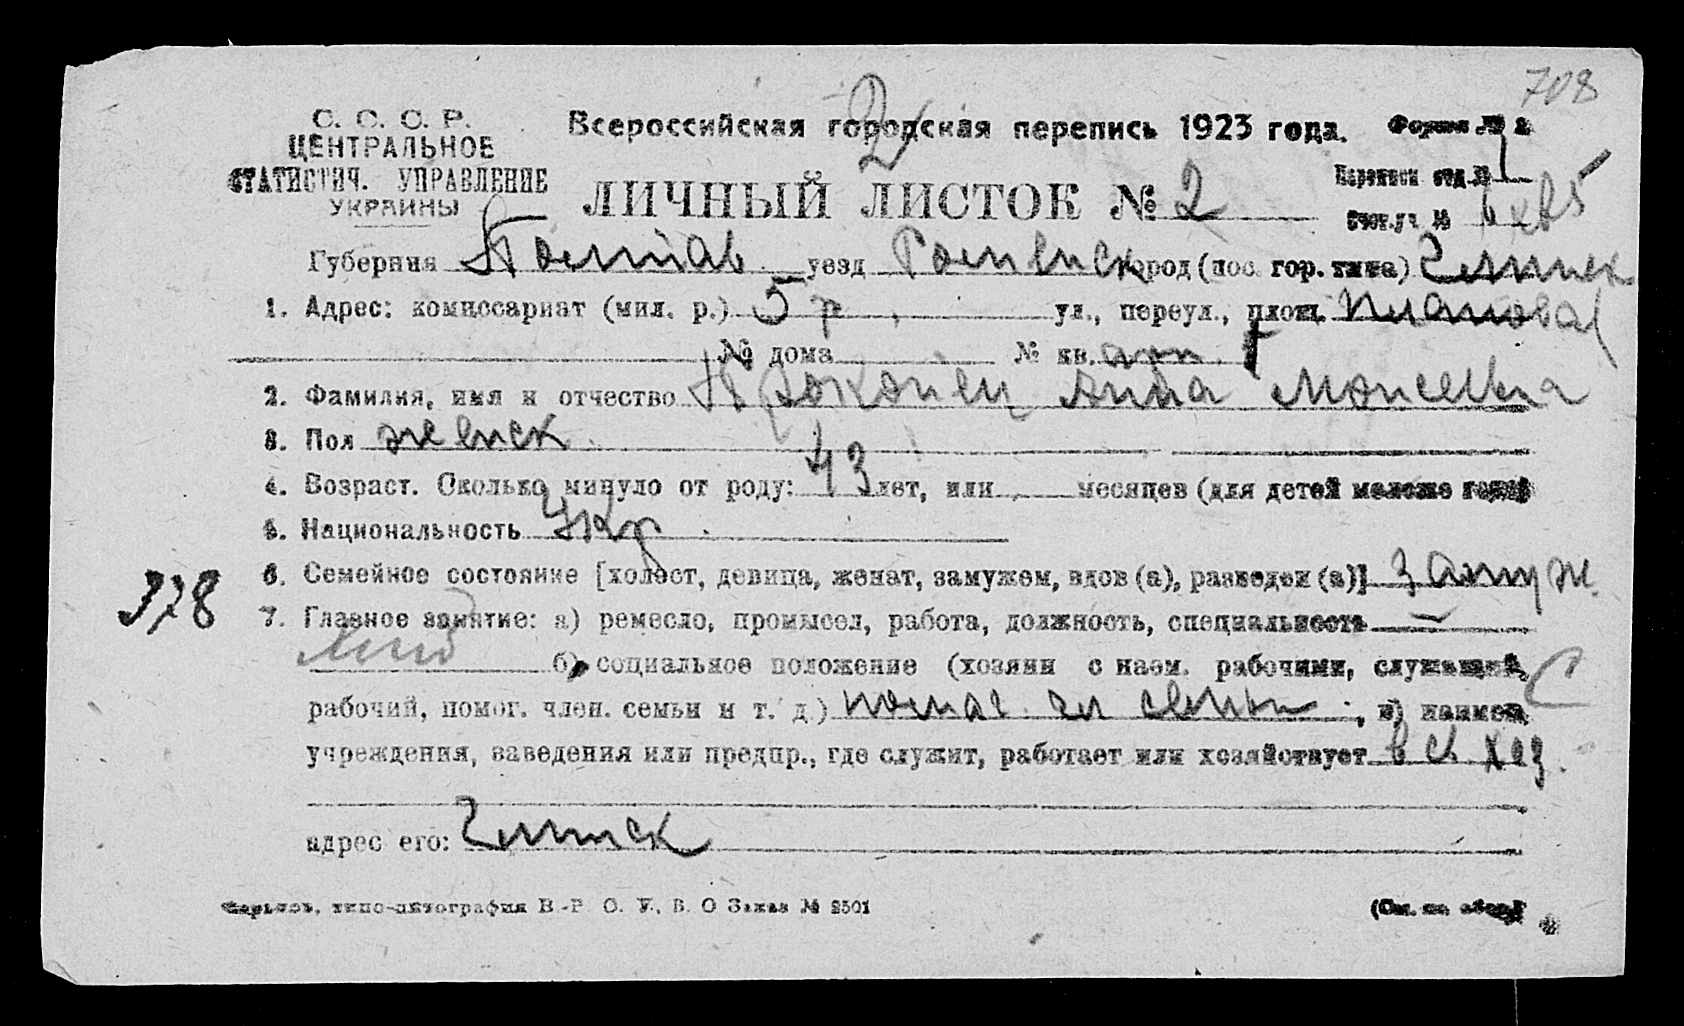 708
С. С. С. Р.
ЦЕНТРАЛЬНОЕ
СТАТИСТИЧ. УПРАВЛЕНИЕ
УКРАИНЫ
Всероссийская городская перепись 1923 года.
Форма № 2
ЛИЧНЫЙ ЛИСТОК № 2
Переписн отд. №
Счет.уч №
Губерния Полтав уезд Роменск город (пос. гор. типа) Глинск
1. Адрес: комиссариат (мил. р.) 5 р. ул., переул., площ.
№ дома № кв.
2. Фамилия, имя и отчество Прокопец Анна Моисеевна
3. Пол женск
4. Возраст. Сколько минуло от роду: 43 лет, или месяцев (для детей моложе года)
5. Национальность Укр
6. Семейное состояние [холост, девица, женат, замужем, вдов (а), разведен (а)] замуж.
378
7. Главное занятие: а) ремесло, промысел, работа, должность, специальность —
б) социальное положение (хозяин с наем. рабочими, служащий,
рабочий, помог. член. семьи и т. д.) помог. чл семьи, в) наимен.
учреждения, заведения или предпр., где служит, работает или хозяйствует в св. хоз.
адрес его: Глинск
Харьков, типо-литография В.-Р. О. У., В. О Заказ № 2501
(См. на обор.)